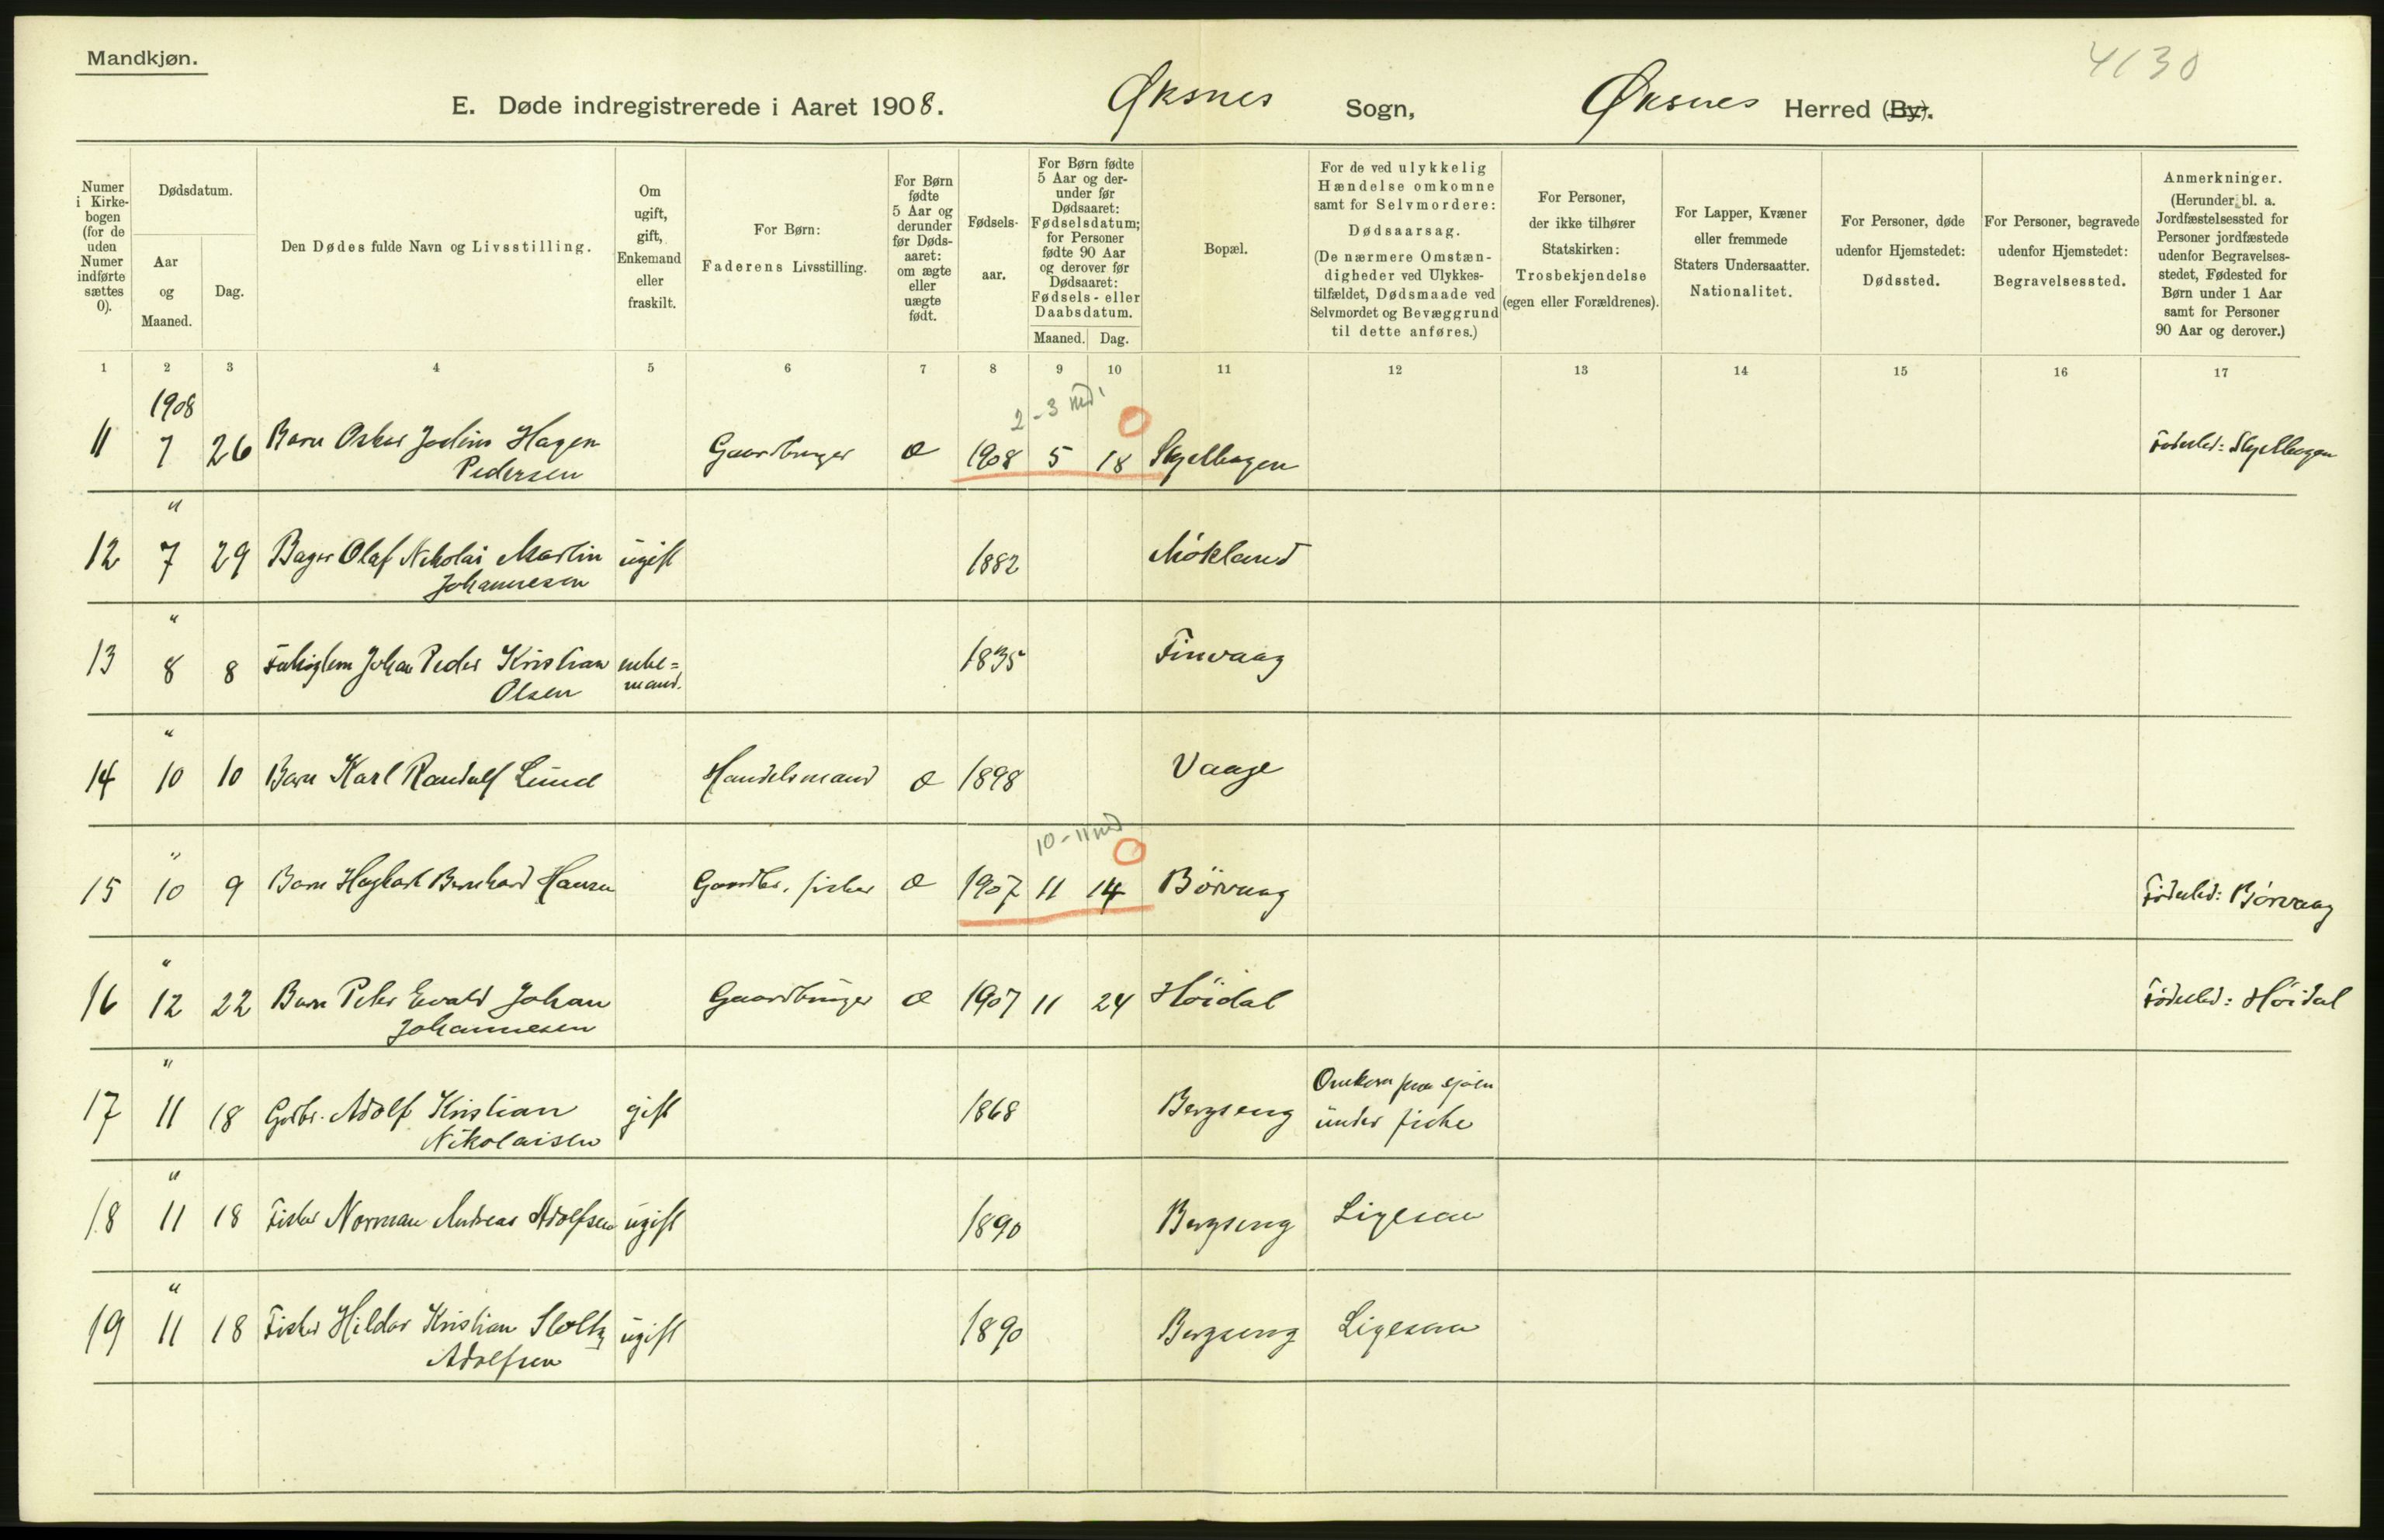 Mandkjøn.
4130
E. Døde indregistrerede i Aaret 1908. Øksnes Sogn, Øksnes Herred (By).
Numer i Kirke-bogen (for de uden Numer indførte sættes 0).
Dødsdatum.
Aar og Maaned.
Dag.
Den Dødes fulde Navn og Livsstilling.
Om ugift, gift, Enkemand eller fraskilt.
For Børn: Faderens Livsstilling.
For Børn fødte 5 Aar og derunder før Døds-aaret: om ægte eller uægte født.
Fødsels-aar.
For Børn fødte 5 Aar og der-under før Dødsaaret: Fødselsdatum; for Personer fødte 90 Aar og derover før Dødsaaret: Fødsels- eller Daabsdatum.
Maaned. Dag.
Bopæl.
For de ved ulykkelig Hændelse omkomne samt for Selvmordere: Dødsaarsag. (De nærmere Omstæn-digheder ved Ulykkes-tilfældet, Dødsmaade ved Selvmordet og Bevæggrund til dette anføres.)
For Personer, der ikke tilhører Statskirken: Trosbekjendelse (egen eller Forældrenes).
For Lapper, Kvæner eller fremmede Staters Undersaatter. Nationalitet.
For Personer, døde udenfor Hjemstedet: Dødssted.
For Personer, begravede udenfor Hjemstedet: Begravelsessted.
Anmerkninger. (Herunder bl. a. Jordfæstelsessted for Personer jordfæstede udenfor Begravelses-stedet, Fødested for Børn under 1 Aar samt for Personer 90 Aar og derover.)
1 2 3 4 5 6 7 8 9 10 11 12 13 14 15 16 17
1908
2-3 md.
11 7 26 Barn Oskar Hagen Gaardbruger æ 1908 5 18 Skjelhagen Fødested: Skjelhagen
Pedersen
"
12 7 29 Bager Olaf Nikolai Martin ugift 1882 Mökland
Johannesen
"
13 8 8 Johan Peder Kristian enke= 1835 Finvaag
Olsen mand.
"
14 10 10 Barn Karl Randulf Lund Handelsmand æ 1898 Vaage
10-11 md
"
15 10 9 Barn Hagbart Bernhard Hansen Gaardbr. fisker æ 1907 11 14 Börvaag Födested: Börvaag
"
16 12 22 Barn Peter Evald Johan Gaardbruger æ 1907 11 24 Höidal Födested: Höidal
Johannesen
"
17 11 18 Gdbr. Adolf Kristian gift 1868 Bergseng Omkom paa sjöen
Nikolaisen under fiske
"
18 11 18 Fisker Norman Andreas Adolfsen ugift 1890 Bergseng Ligesaa
"
19 11 18 Fisker Hildor Kristian Stoltz ugift 1890 Bergseng Ligesaa
Adolfsen